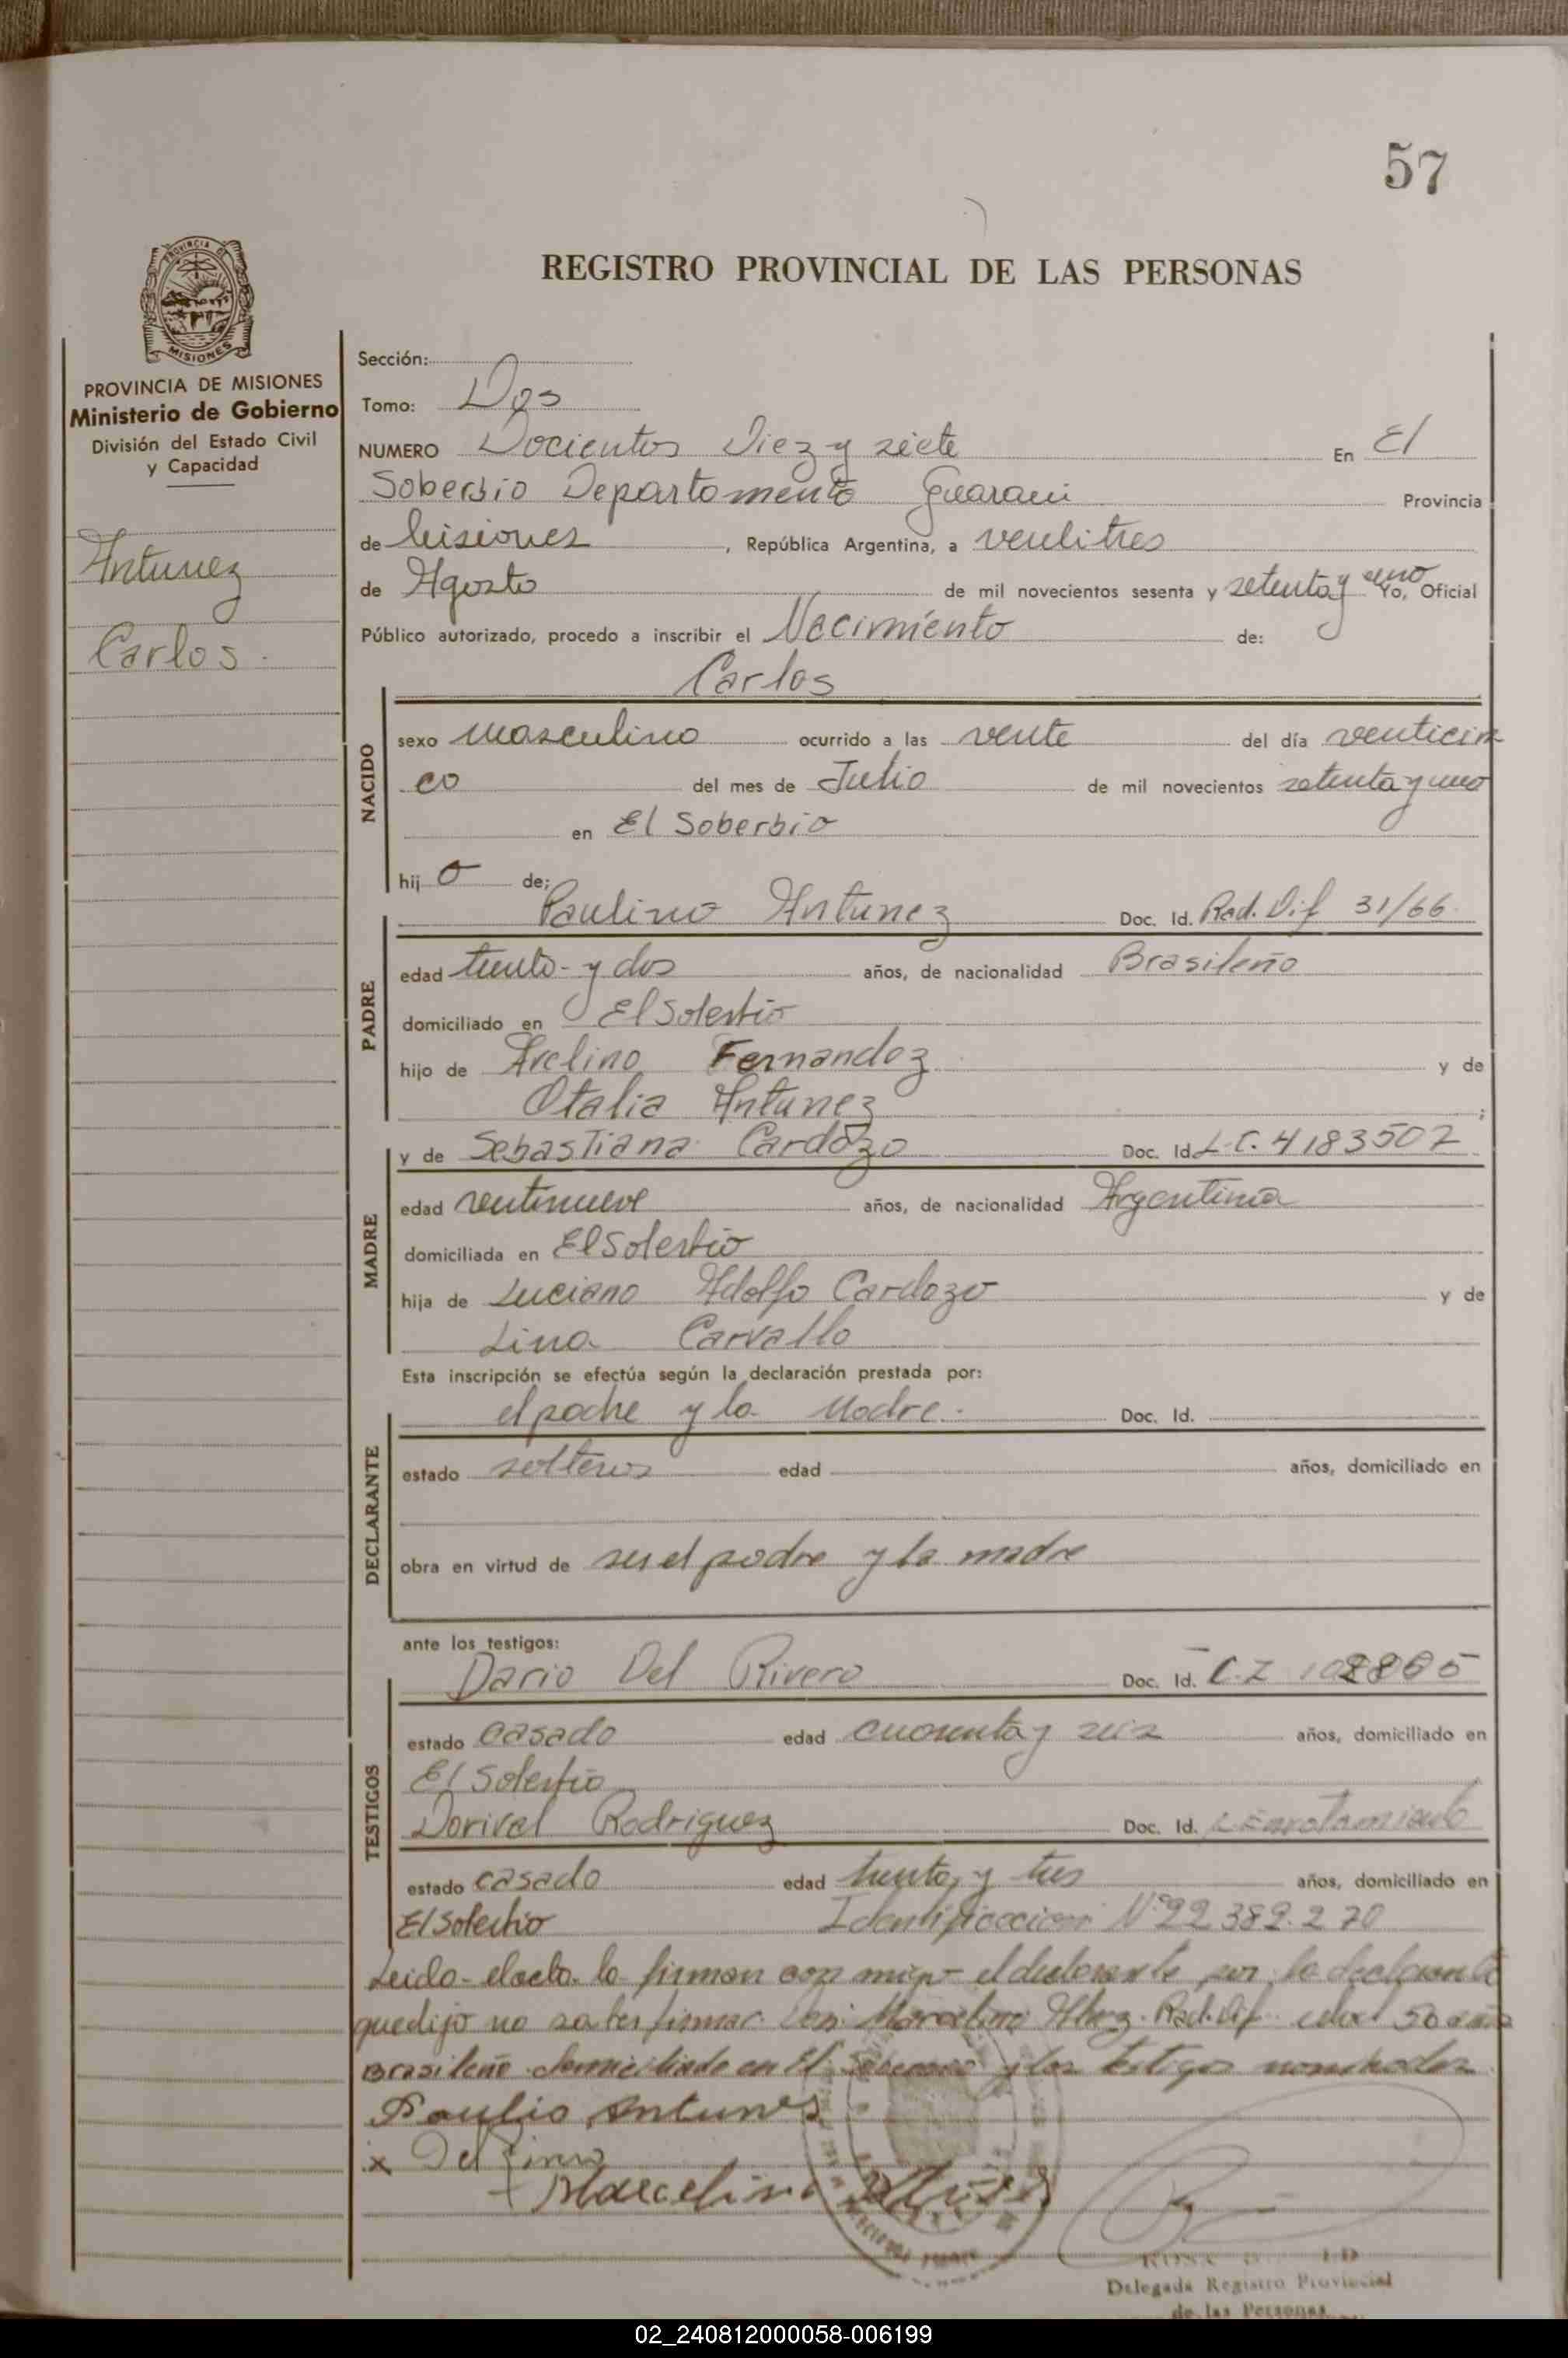 57
REGISTRO PROVINCIAL DE LAS PERSONAS
PROVINCIA DE MISIONES
PROVINCIA DE MISIONES
Ministerio de Gobierno
División del Estado Civil
y Capacidad
Antunez
Carlos
Sección:
Tomo: Dos
NUMERO Docientos Diez y siete En El
Soberbio Departamento Guarani Provincia
de Misiones, República Argentina, a ventitres
de Agosto de mil novecientos sesenta y setenta y uno Yo, Oficial
Público autorizado, procedo a inscribir el Nacimiento de:
Carlos
NACIDO
sexo masculino ocurrido a las vente del día venticin
co del mes de Julio de mil novecientos setenta y uno
en El Soberbio
hij o de:
PADRE
Paulino Antunez Doc. Id. Rad. Dif 31/66
edad trenta y dos años, de nacionalidad Brasileño
domiciliado en El Soberbio
hijo de Avelino Fernandez y de
Otalia Antunez ;
MADRE
y de Sebastiana Cardozo Doc. Id. L.C. 4183507
edad ventinueve años, de nacionalidad Argentina
domiciliada en El Soberbio
hija de Luciano Adolfo Cardozo y de
Lina Carvallo
Esta inscripción se efectúa según la declaración prestada por:
DECLARANTE
el padre y la Madre. Doc. Id.
estado solteros edad años, domiciliado en
obra en virtud de ser el padre y la madre
ante los testigos:
TESTIGOS
Dario Del Rivero Doc. Id. C.I
estado casado edad cuarenta y seis años, domiciliado en
El Soberbio
Dorival Rodriguez Doc. Id. L Enrolamiento
estado casado edad trenta y tres años, domiciliado en
El Soberbio Identificacion Nº 22.389.270
Leido el acta la firman con migo el declarante por la declarante
que dijo no saber firmar Marcelino Rad. Dif edad 50 años
Brasileño domiciliado en El Soberbio y los testigos nombrados
Paulio Antunes
x Del
Marcelino
Delegada Registro Provincial
de las Personas
02_240812000058-006199